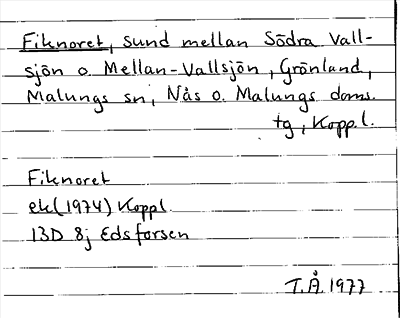 Fiknoret, sund mellan Södra Vall-
sjön o. Mellan-Vallsjön, Grönland,
Malungs sn, Nås o. Malungs doms.
tg, Kopp.l.
Fiknoret
ek(1974) Koppl.
13D 8j Edsforsen
T.Å. 1977